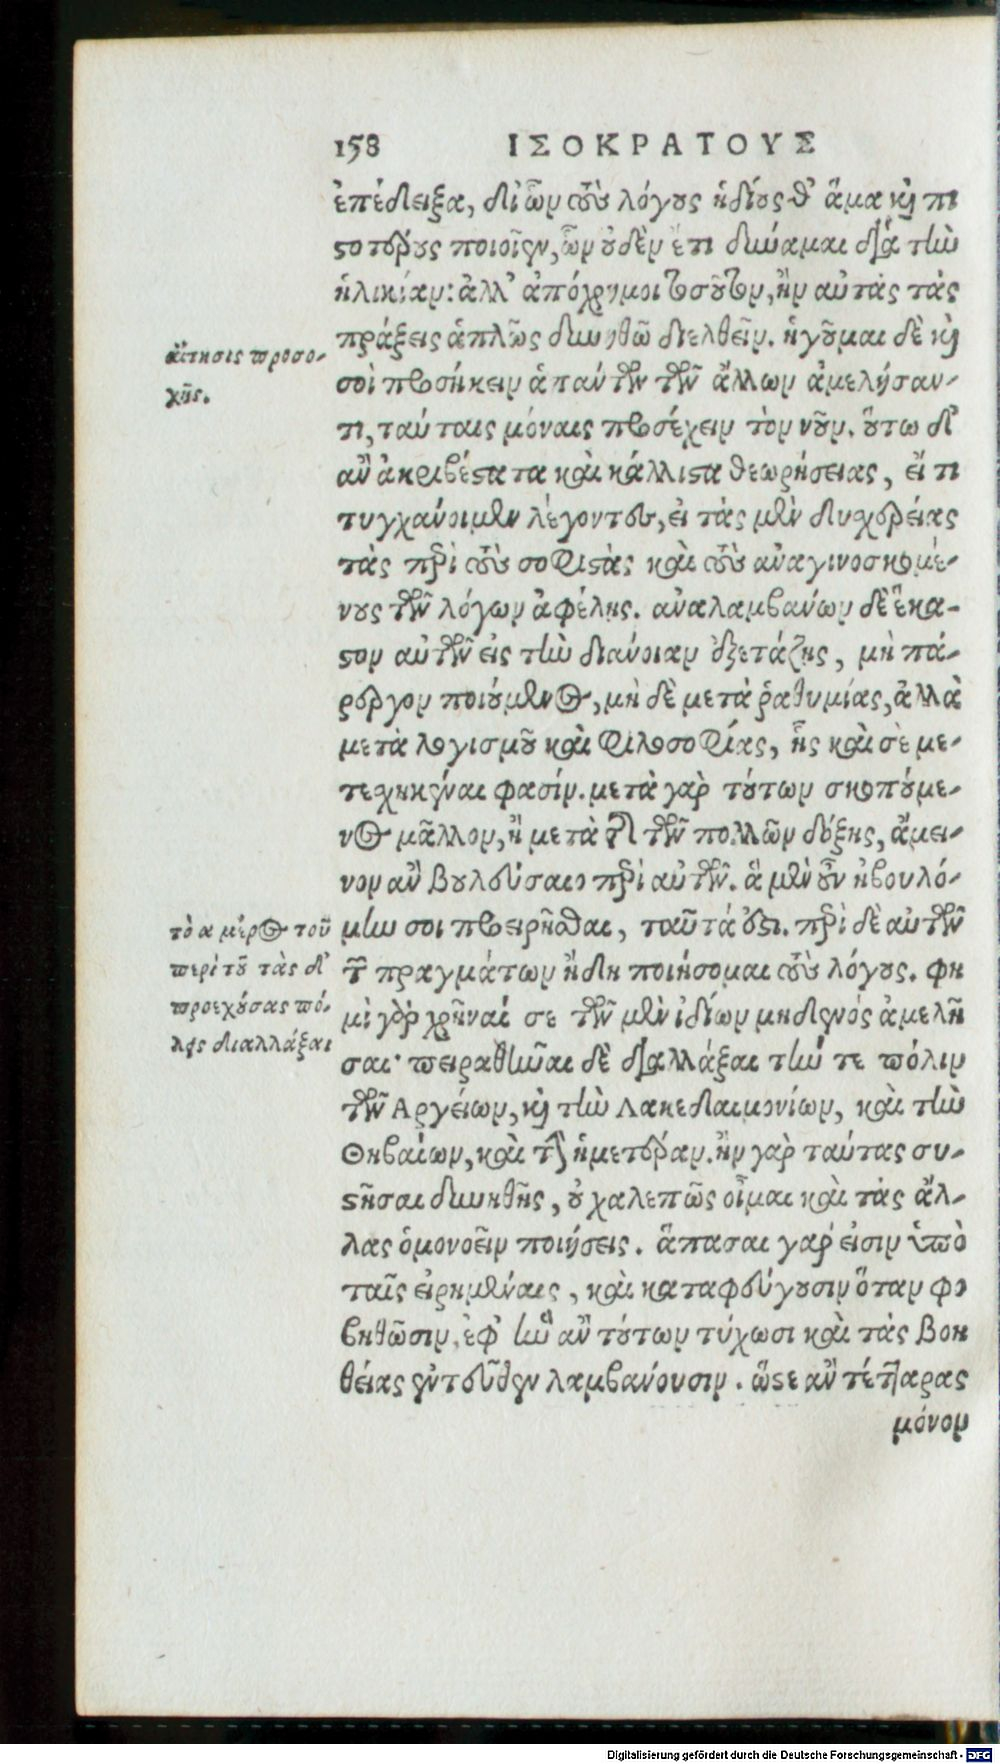 158 ΙΣΟΚΡΑΤΟΥΣ
ἐπέδειξα, δι’ ὧν τοὺς λόγους ἡδίους θ’ ἅμα καὶ πι
στοτέρους ποιοῖεν, ὧν οὐδὲν ἔτι δύναμαι διὰ τὴν
ἡλικίαν: ἀλλ’ ἀπόχρη μοι τοσοῦτον, ἢν αὐτὰς τὰς
πράξεις ἁπλῶς δυνηθῶ διελθεῖν. ἡγοῦμαι δὲ καὶ
αἴτησις προσο-
χῆς.
σοὶ προσήκειν ἁπάντων τῶν ἄλλων ἀμελήσαν-
τι, ταύταις μόναις προσέχειν τὸν νοῦν. οὕτω δ’
ἂν ἀκριβέστατα καὶ κάλλιστα θεωρήσειας, εἴ τι
τυγχάνοιμεν λέγοντες, εἰ τὰς μὲν δυσχερείας
τὰς περὶ τοὺς σοφιστὰς καὶ τοὺς ἀναγινοσκομέ-
νους τῶν λόγων ἀφέλης. ἀναλαμβανων δὲ ἕκα-
στον αὐτῶν εἰς τὴν διάνοιαν ἐξετάζης, μὴ πά-
ρεργον ποιούμενος, μὴ δὲ μετὰ ῥαθυμίας, ἀλλὰ
μετὰ λογισμοῦ καὶ φιλοσοφίας, ἧς καὶ σὲ με-
τεχηκέναι φασίν. μετὰ γὰρ τούτων σκοπούμε-
νος μᾶλλον, ἢ μετὰ τῆς τῶν πολλῶν δόξης, ἄμει-
νον ἂν βουλεύσαιο περὶ αὐτῶν. ἃ μὲν οὖν ἠβουλό-
μην σοι προειρῆσθαι, ταῦτά ἐστι. περὶ δὲ αὐτῶν
τὸ α μέρος τοῦ
περὶ τοῦ τὰς δ’
προεχούσας πό-
λεις διαλλάξαι
τῶν πραγμάτων ἤδη ποιήσομαι τοὺς λόγους. φη
μὶ γὰρ χρῆναί σε τῶν μὲν ἰδίων μηδενός ἀμελῆ
σαι· πειραθῆναι δὲ διαλλάξαι τήν τε πόλιν
τῶν Αργείων, καὶ τὴν Λακεδαιμονίων, καὶ τὴν
Θηβαίων, καὶ τὴν ἡμετέραν. ἢν γὰρ ταύτας συ-
στῆσαι δυνηθῆς, οὐ χαλεπῶς οἶμαι καὶ τὰς ἄλ-
λας ὁμονοεῖν ποιήσεις. ἅπασαι γάρ εἰσιν ὑπὸ
ταῖς εἰρημέναις, καὶ καταφεύγουσιν ὅταν φο
βηθῶσιν, ἐφ’ ἣν ἂν τούτων τύχωσι καὶ τὰς βοη
θείας ἐντεῦθεν λαμβανουσιν. ὥστε ἂν τέτταρας
μόνον
Digitalisierung gefördert durch die Deutsche Forschungsgemeinschaft - DFG